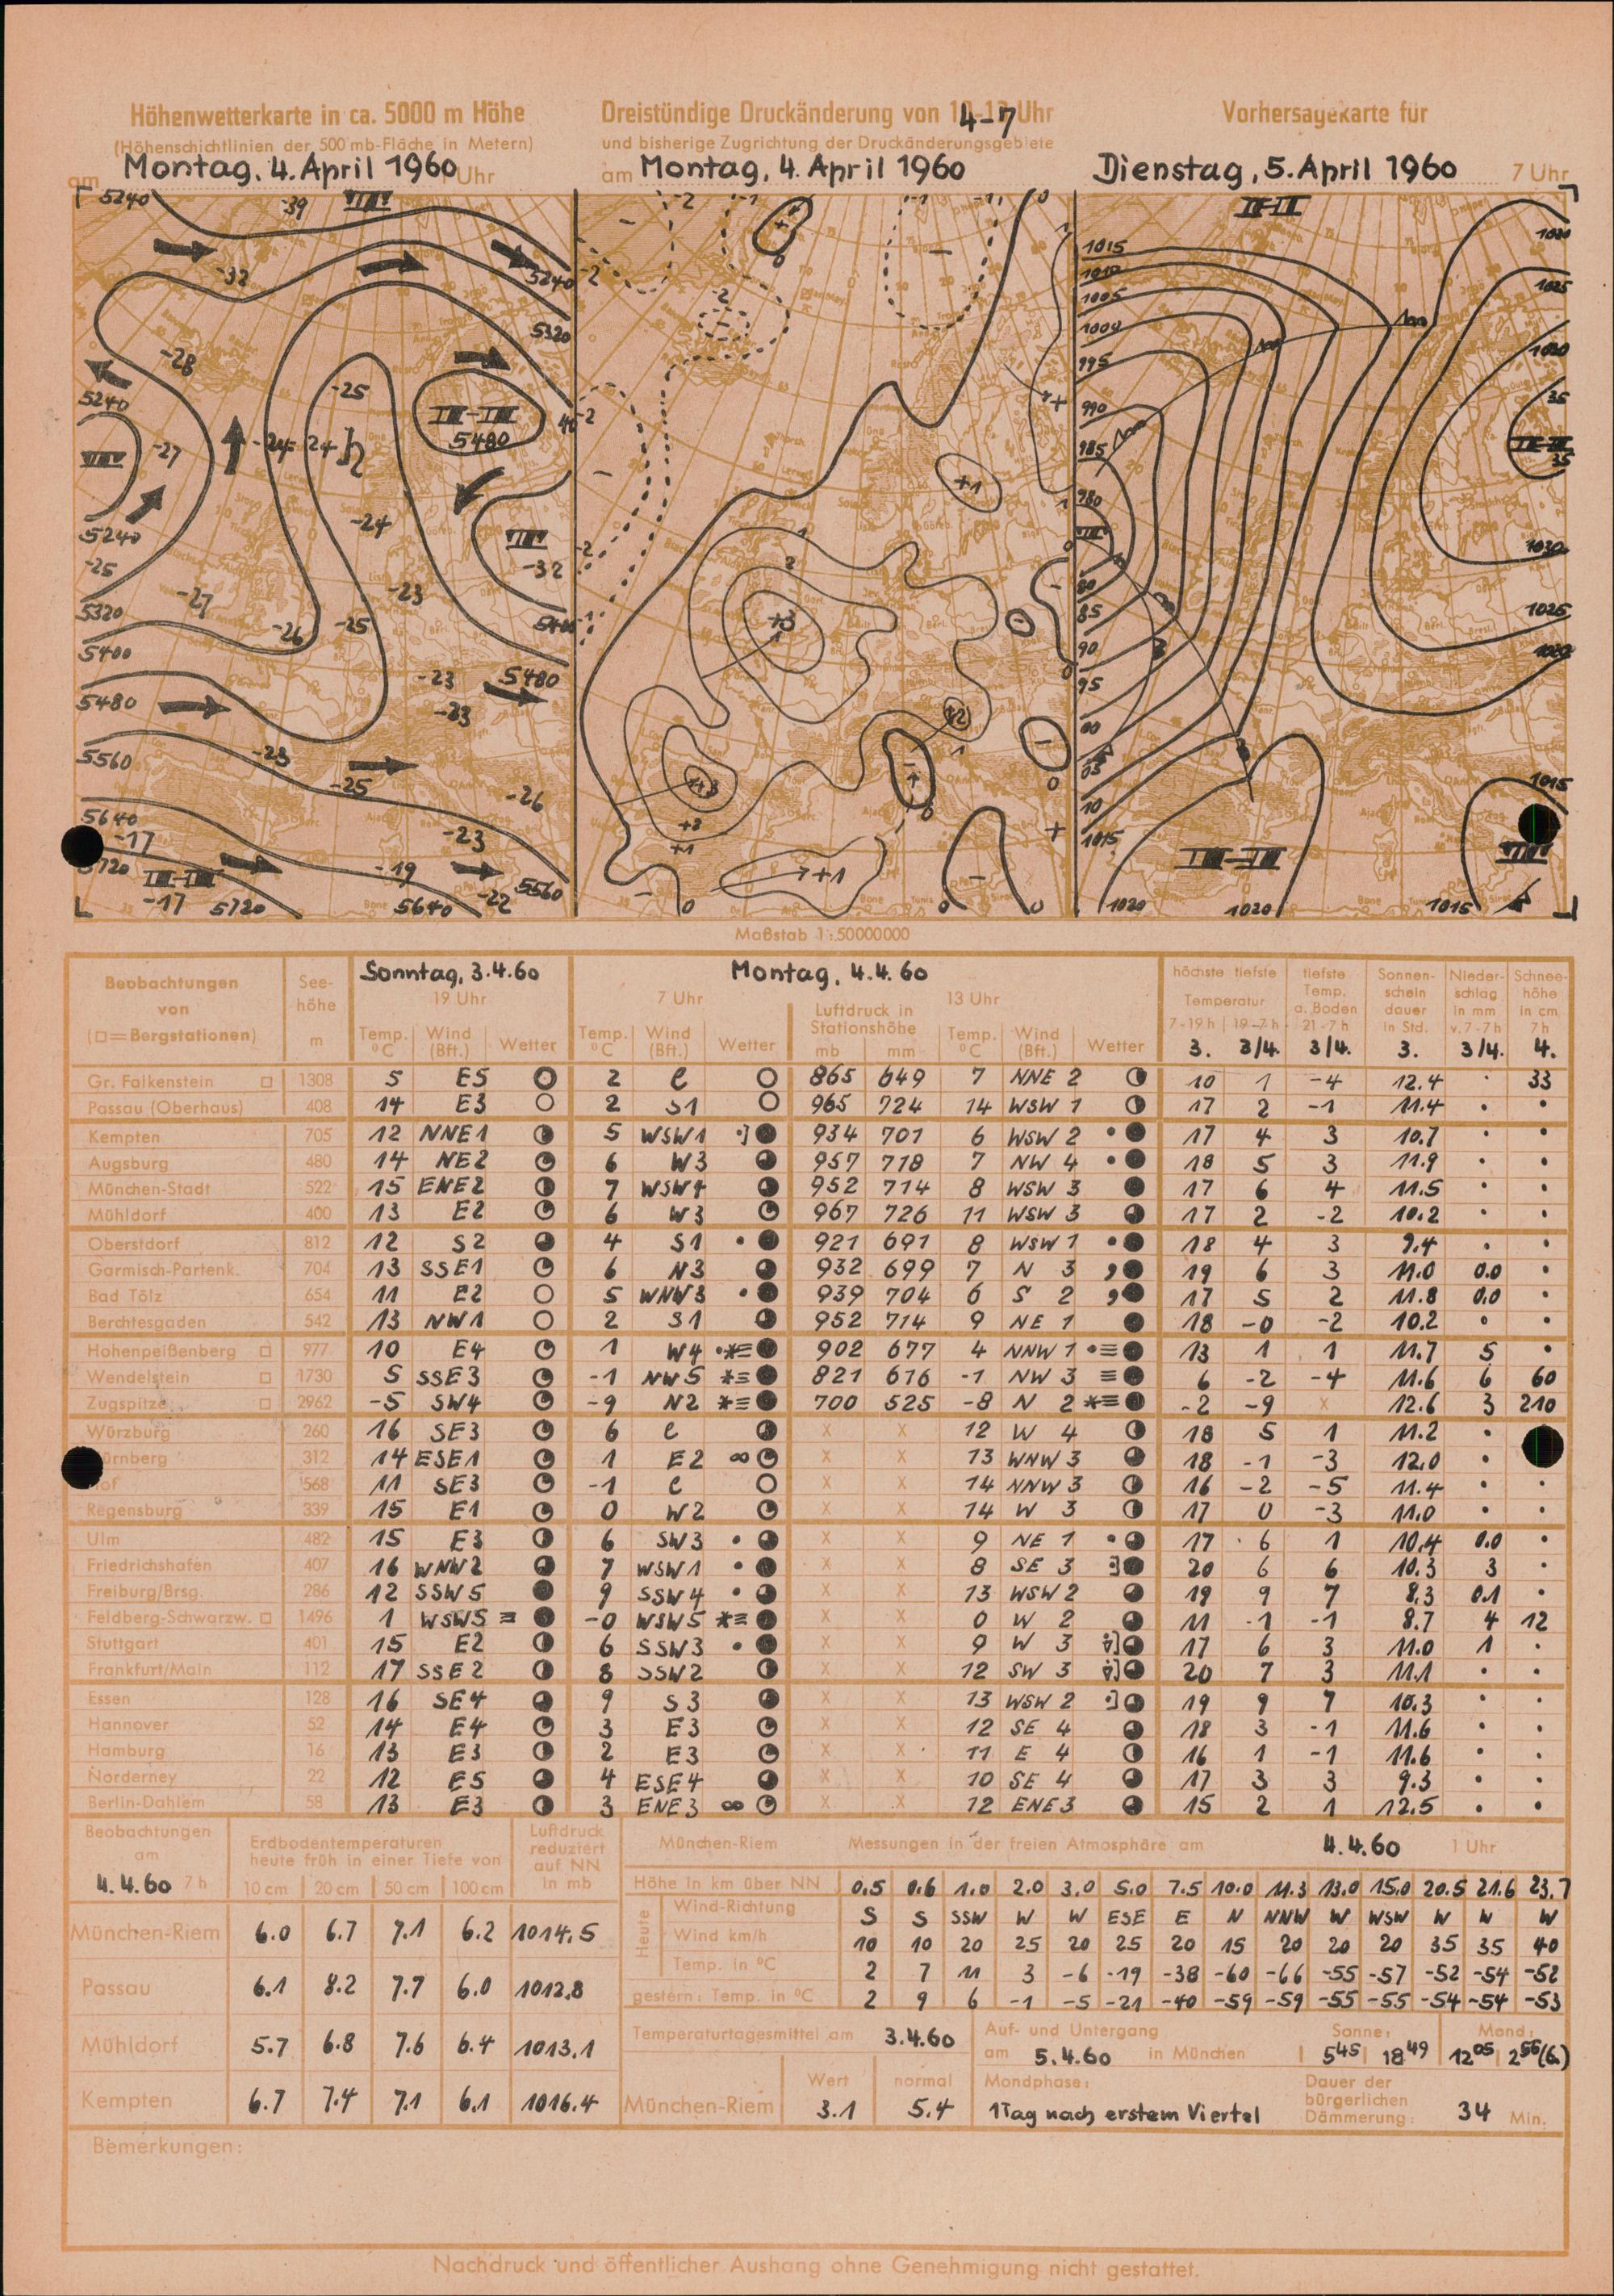 Höhenwetterkarte in ca. 5000 m Höhe
(Höhenschichtlinien der 500 mb-Fläche in Metern)
am Montag, 4. April 1960 Uhr
Dreistündige Druckänderung von 4-7 Uhr
und bisherige Zugrichtung der Druckänderungsgebiete
am Montag, 4. April 1960
Vorhersagekarte für
Dienstag, 5. April 1960 7 Uhr
5240 -39
-32 5240
5320
-28 -25
5240 5480
-27 -24 24
5240 -24
-25 -32
5320 -27 -23
-26 -25
5400
5480 -23 5480
-23
5560 -23
-25 -26
5640 -17 -23
5720 -19 5560
-17 5720 5640 -22
-2 -1 -1 0
-2 -2
+1
+3
+2
+3
+2
+1 +1
0 0 0
1015 1020
1010 1025
1005
995 35
990
985 35
980
1030
80
85 1025
90
95
00
05 1015
10
1015
1020 1020 1015
Maßstab 1:50000000
Beobachtungen von (□=Bergstationen) Seehöhe m Sonntag, 3.4.60 Montag, 4.4.60
19 Uhr 7 Uhr Luftdruck in Stationshöhe 13 Uhr
höchste tiefste Temperatur tiefste Temp. a. Boden Sonnenscheindauer in Std. Niederschlag in mm Schneehöhe in cm
Temp. °C Wind (Bft.) Wetter Temp. °C Wind (Bft.) Wetter mb mm Temp. °C Wind (Bft.) Wetter 7-19 h 19-7 h 21-7 h v. 7-7 h 7 h
3. 3/4. 3/4. 3. 3/4. 4.
Gr. Falkenstein □ 1308 5 E5 2 C 865 649 7 NNE 2 10 1 -4 12.4 · 33
Passau (Oberhaus) 408 14 E3 2 S1 965 724 14 WSW 1 17 2 -1 11.4 · ·
Kempten 705 12 NNE1 5 WSW1 934 701 6 WSW 2 17 4 3 10.7 · ·
Augsburg 480 14 NE2 6 W3 957 718 7 NW 4 18 5 3 11.9 · ·
München-Stadt 522 15 ENE2 7 WSW4 952 714 8 WSW 3 17 6 4 11.5 · ·
Mühldorf 400 13 E2 6 W3 967 726 11 WSW 3 17 2 -2 10.2 · ·
Oberstdorf 812 12 S2 4 S1 921 691 8 WSW 1 18 4 3 9.4 · ·
Garmisch-Partenk. 704 13 SSE1 6 N3 932 699 7 N 3 19 6 3 11.0 0.0 ·
Bad Tölz 654 11 E2 5 WNW3 939 704 6 S 2 17 5 2 11.8 0.0 ·
Berchtesgaden 542 13 NW1 2 S1 952 714 9 NE 1 18 -0 -2 10.2 · ·
Hohenpeißenberg □ 977 10 E4 1 W4 902 677 4 NNW 1 13 1 1 11.7 5 ·
Wendelstein □ 1730 5 SSE3 -1 NW5 821 616 -1 NW 3 6 -2 -4 11.6 6 60
Zugspitze □ 2962 -5 SW4 -9 N2 700 525 -8 N 2 -2 -9 x 12.6 3 210
Würzburg 260 16 SE3 6 C x x 12 W 4 18 5 1 11.2 ·
ürnberg 312 14 ESE1 1 E2 ∞ x x 13 WNW 3 18 -1 -3 12.0 ·
Hof 568 11 SE3 -1 C x x 14 NNW 3 16 -2 -5 11.4 · ·
Regensburg 339 15 E1 0 W2 x x 14 W 3 17 0 -3 11.0 · ·
Ulm 482 15 E3 6 SW3 x x 9 NE 1 17 6 1 10.4 0.0 ·
Friedrichshafen 407 16 WNW2 7 WSW1 x x 8 SE 3 20 6 6 10.3 3 ·
Freiburg/Brsg. 286 12 SSW5 9 SSW4 x x 13 WSW 2 19 9 7 8.3 0.1 ·
Feldberg-Schwarzw. □ 1496 1 WSW5 -0 WSW5 x x 0 W 2 11 -1 -1 8.7 4 12
Stuttgart 401 15 E2 6 SSW3 x x 9 W 3 17 6 3 11.0 1 ·
Frankfurt/Main 112 17 SSE2 8 SSW2 x x 12 SW 3 20 7 3 11.1 · ·
Essen 128 16 SE4 9 S3 x x 13 WSW 2 19 9 7 10.3 · ·
Hannover 52 14 E4 3 E3 x x 12 SE 4 18 3 -1 11.6 · ·
Hamburg 16 13 E3 2 E3 x x 11 E 4 16 1 -1 11.6 · ·
Norderney 22 12 E5 4 ESE4 x x 10 SE 4 17 3 3 9.3 · ·
Berlin-Dahlem 58 13 E3 3 ENE3 ∞ x x 12 ENE3 15 2 1 12.5 · ·
Beobachtungen am 4.4.60 7 h
Erdbodentemperaturen heute früh in einer Tiefe von
10 cm 20 cm 50 cm 100 cm
Luftdruck reduziert auf NN in mb
München-Riem 6.0 6.7 7.1 6.2 1014.5
Passau 6.1 8.2 7.7 6.0 1012.8
Mühldorf 5.7 6.8 7.6 6.4 1013.1
Kempten 6.7 7.4 7.1 6.1 1016.4
München-Riem Messungen in der freien Atmosphäre am 4.4.60 1 Uhr
Höhe in km über NN 0.5 0.6 1.0 2.0 3.0 5.0 7.5 10.0 11.3 13.0 15.0 20.5 21.6 23.7
Heute
Wind-Richtung S S SSW W W ESE E N NNW W WSW W W W
Wind km/h 10 10 20 25 20 25 20 15 20 20 20 35 35 40
Temp. in °C 2 7 11 3 -6 -19 -38 -60 -66 -55 -57 -52 -54 -52
gestern: Temp. in °C 2 9 6 -1 -5 -21 -40 -59 -59 -55 -55 -54 -54 -53
Temperaturtagesmittel am 3.4.60
Wert normal
München-Riem 3.1 5.4
Auf- und Untergang am 5.4.60 in München
Sonne: 5 45 18 49
Mond: 12 05 2 56 (6.)
Mondphase:
1 Tag nach erstem Viertel
Dauer der bürgerlichen Dämmerung: 34 Min.
Bemerkungen:
Nachdruck und öffentlicher Aushang ohne Genehmigung nicht gestattet.